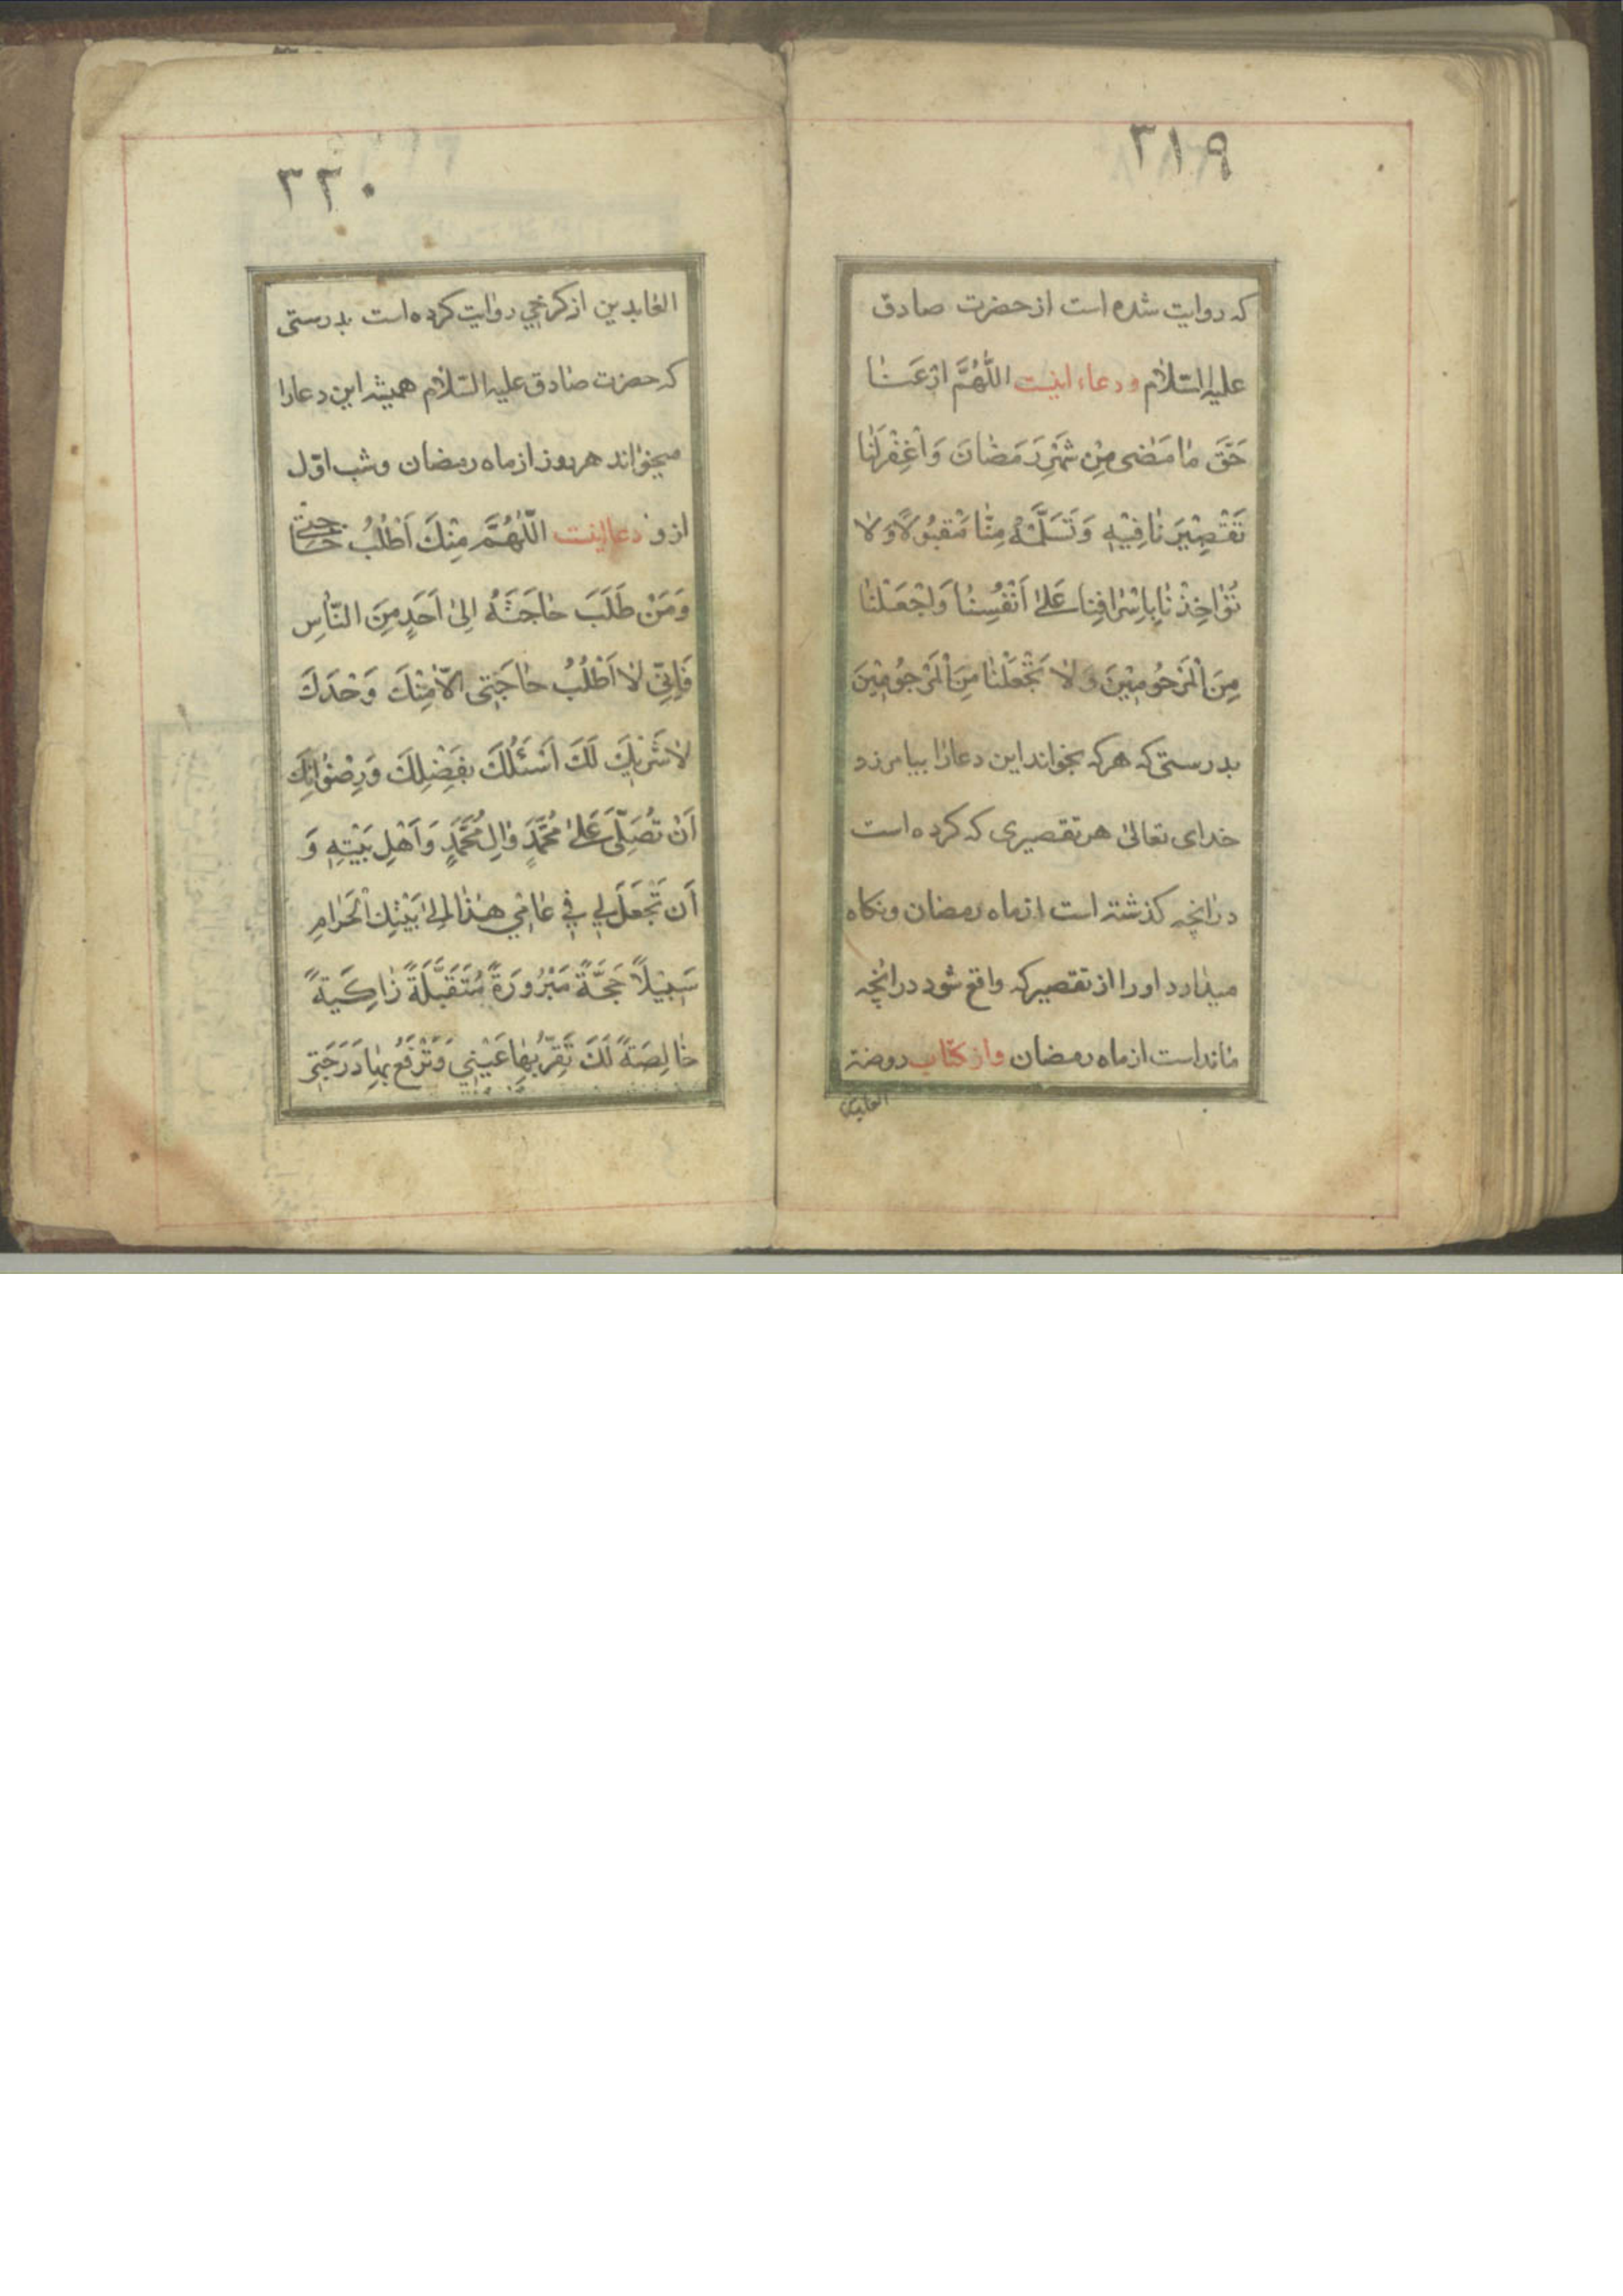 ۳۱۹
که روایت شده است از حضرت صادق
علیه السّلام و دعاء اینست اَللّٰهُمَّ اَدِّ عَنّٰا
حَقَّ مٰا مَضٰى مِنْ شَهْرِ رَمَضٰانَ وَاغْفِرْ لَنٰا
تَقْصِیْرَنٰا فِیْهِ وَتَسَلَّمْهُ مِنّٰا مَقْبُوْلًا وَلٰا
تُؤٰاخِذْنٰا بِاِسْرٰافِنٰا عَلىٰ اَنْفُسِنٰا وَاجْعَلْنٰا
مِنَ الْمَرْحُوْمِیْنَ وَلٰا تَجْعَلْنٰا مِنَ الْمَرْجُوْمِیْنَ
بدرستی که هر که بخواند این دعا را بیامرزد
خدای تعالیٰ هر تقصیری که کرده است
در انچه کذشته است از ماه رمضان ونکاه
میدارد او را از تقصیر که واقع شود در انچه
مانداست از ماه رمضان واز کتاب روضة
العابدین
۳۲۰
العابدین از کرخجی روایت کرده است بدرستی
که حضرت صادق علیه السّلام همیشه این دعا را
میخواند هر روز از ماه رمضان و شب اوّل
ازو دعا اینست اَللّٰهُمَّ مِنْكَ اَطْلُبُ حٰاجَتِی
وَمَنْ طَلَبَ حٰاجَتَهُ اِلىٰ اَحَدٍ مِنَ النّٰاسِ
فَاِنّی لٰا اَطْلُبُ حٰاجَتِی اِلّٰا مِنْكَ وَحْدَكَ
لٰا شَرِیْكَ لَكَ اَسْئَلُكَ بِفَضْلِكَ وَرِضْوٰانِكَ
اَنْ تُصَلِّیَ عَلىٰ مُحَمَّدٍ وَاٰلِ مُحَمَّدٍ وَاَهْلِ بَیْتِهِ وَ
اَنْ تَجْعَلَ لِي فِي عٰامِي هٰذٰا اِلىٰ بَیْتِكَ الْحَرٰامِ
سَبِیْلًا حَجَّةً مَبْرُوْرَةً مُتَقَبَّلَةً زٰاكِیَةً
خٰالِصَةً لَكَ تَقَرُّ بِهٰا عَیْنِي وَتَرْفَعُ بِهٰا دَرَجَتِي